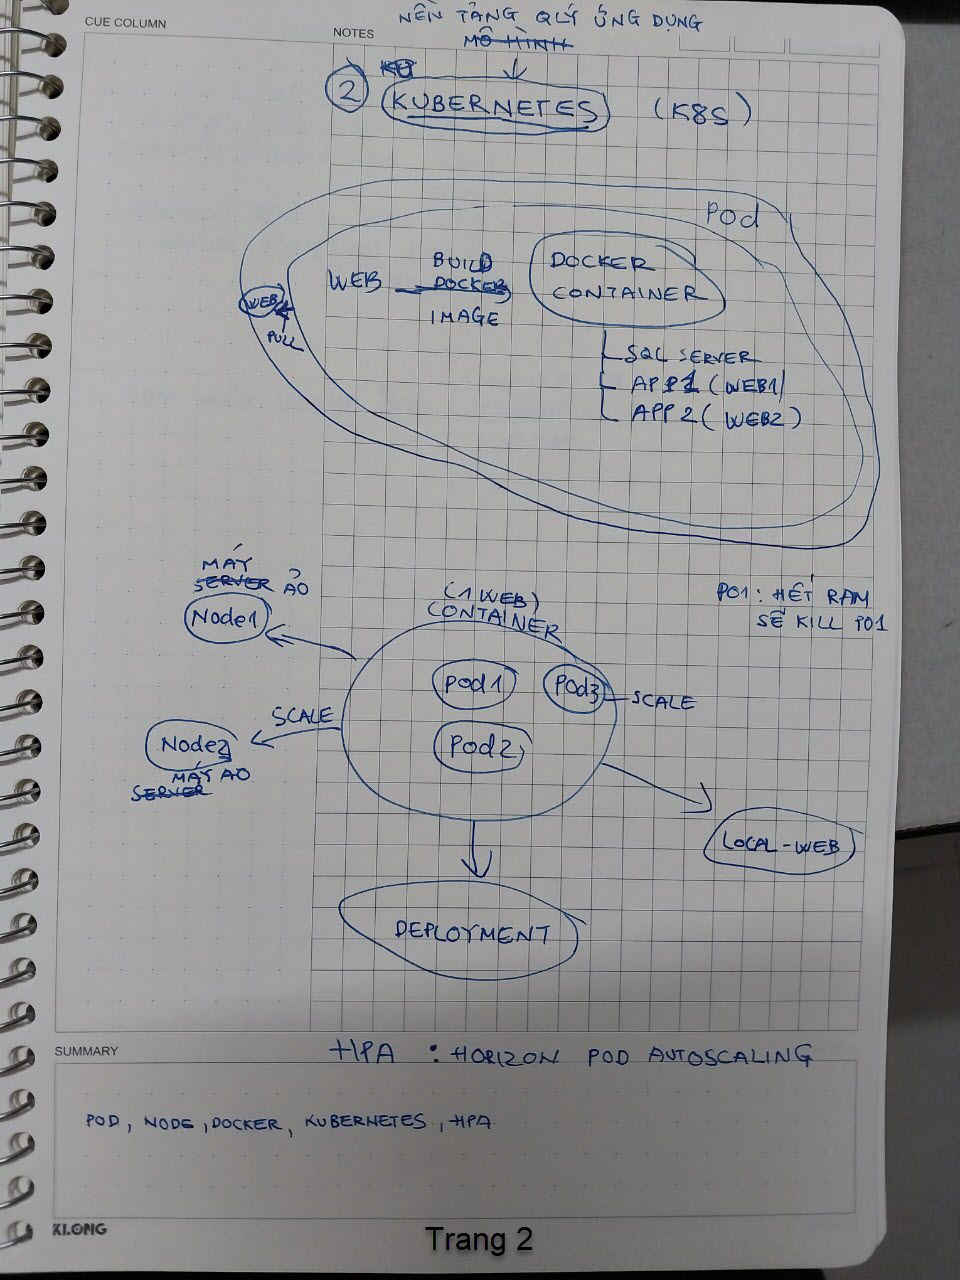 CUE COLUMN
NOTES
NỀN TẢNG QLÝ ỨNG DỤNG
MÔ HÌNH
2
KUBERNETES (K8S)
POD
WEB
BUILD
DOCKER
IMAGE
DOCKER
CONTAINER
WEB
PULL
SQL SERVER
APP1 (WEB1)
APP2 (WEB2)
MÁY
SERVER ẢO
Node1
(1 WEB)
CONTAINER
PO1: HẾT RAM
SẼ KILL PO1
Pod1
Pod3
SCALE
SCALE
Node2
Pod2
MÁY ẢO
SERVER
LOCAL-WEB
DEPLOYMENT
SUMMARY
HPA : HORIZON POD AUTOSCALING
POD, NODE, DOCKER, KUBERNETES, HPA
KLONG
Trang 2